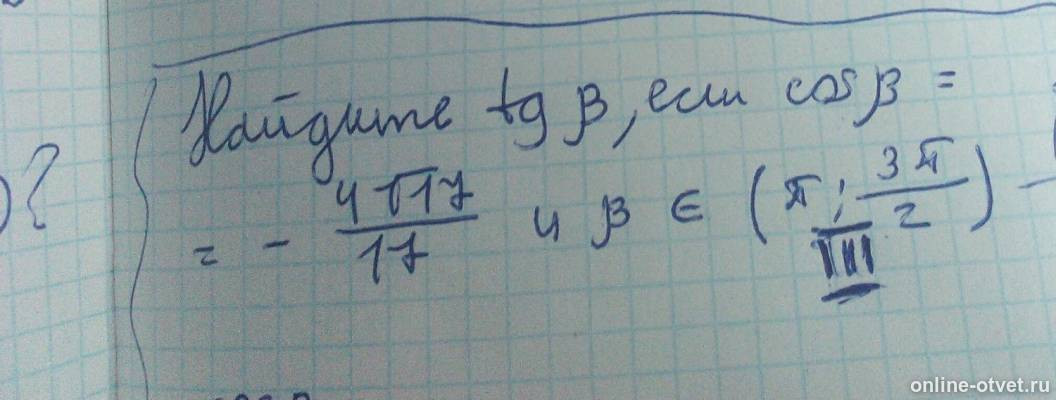 Найдите tg β, если cos β =
= - 4√17/17 и β ∈ (π; 3π/2)
III
online-otvet.ru